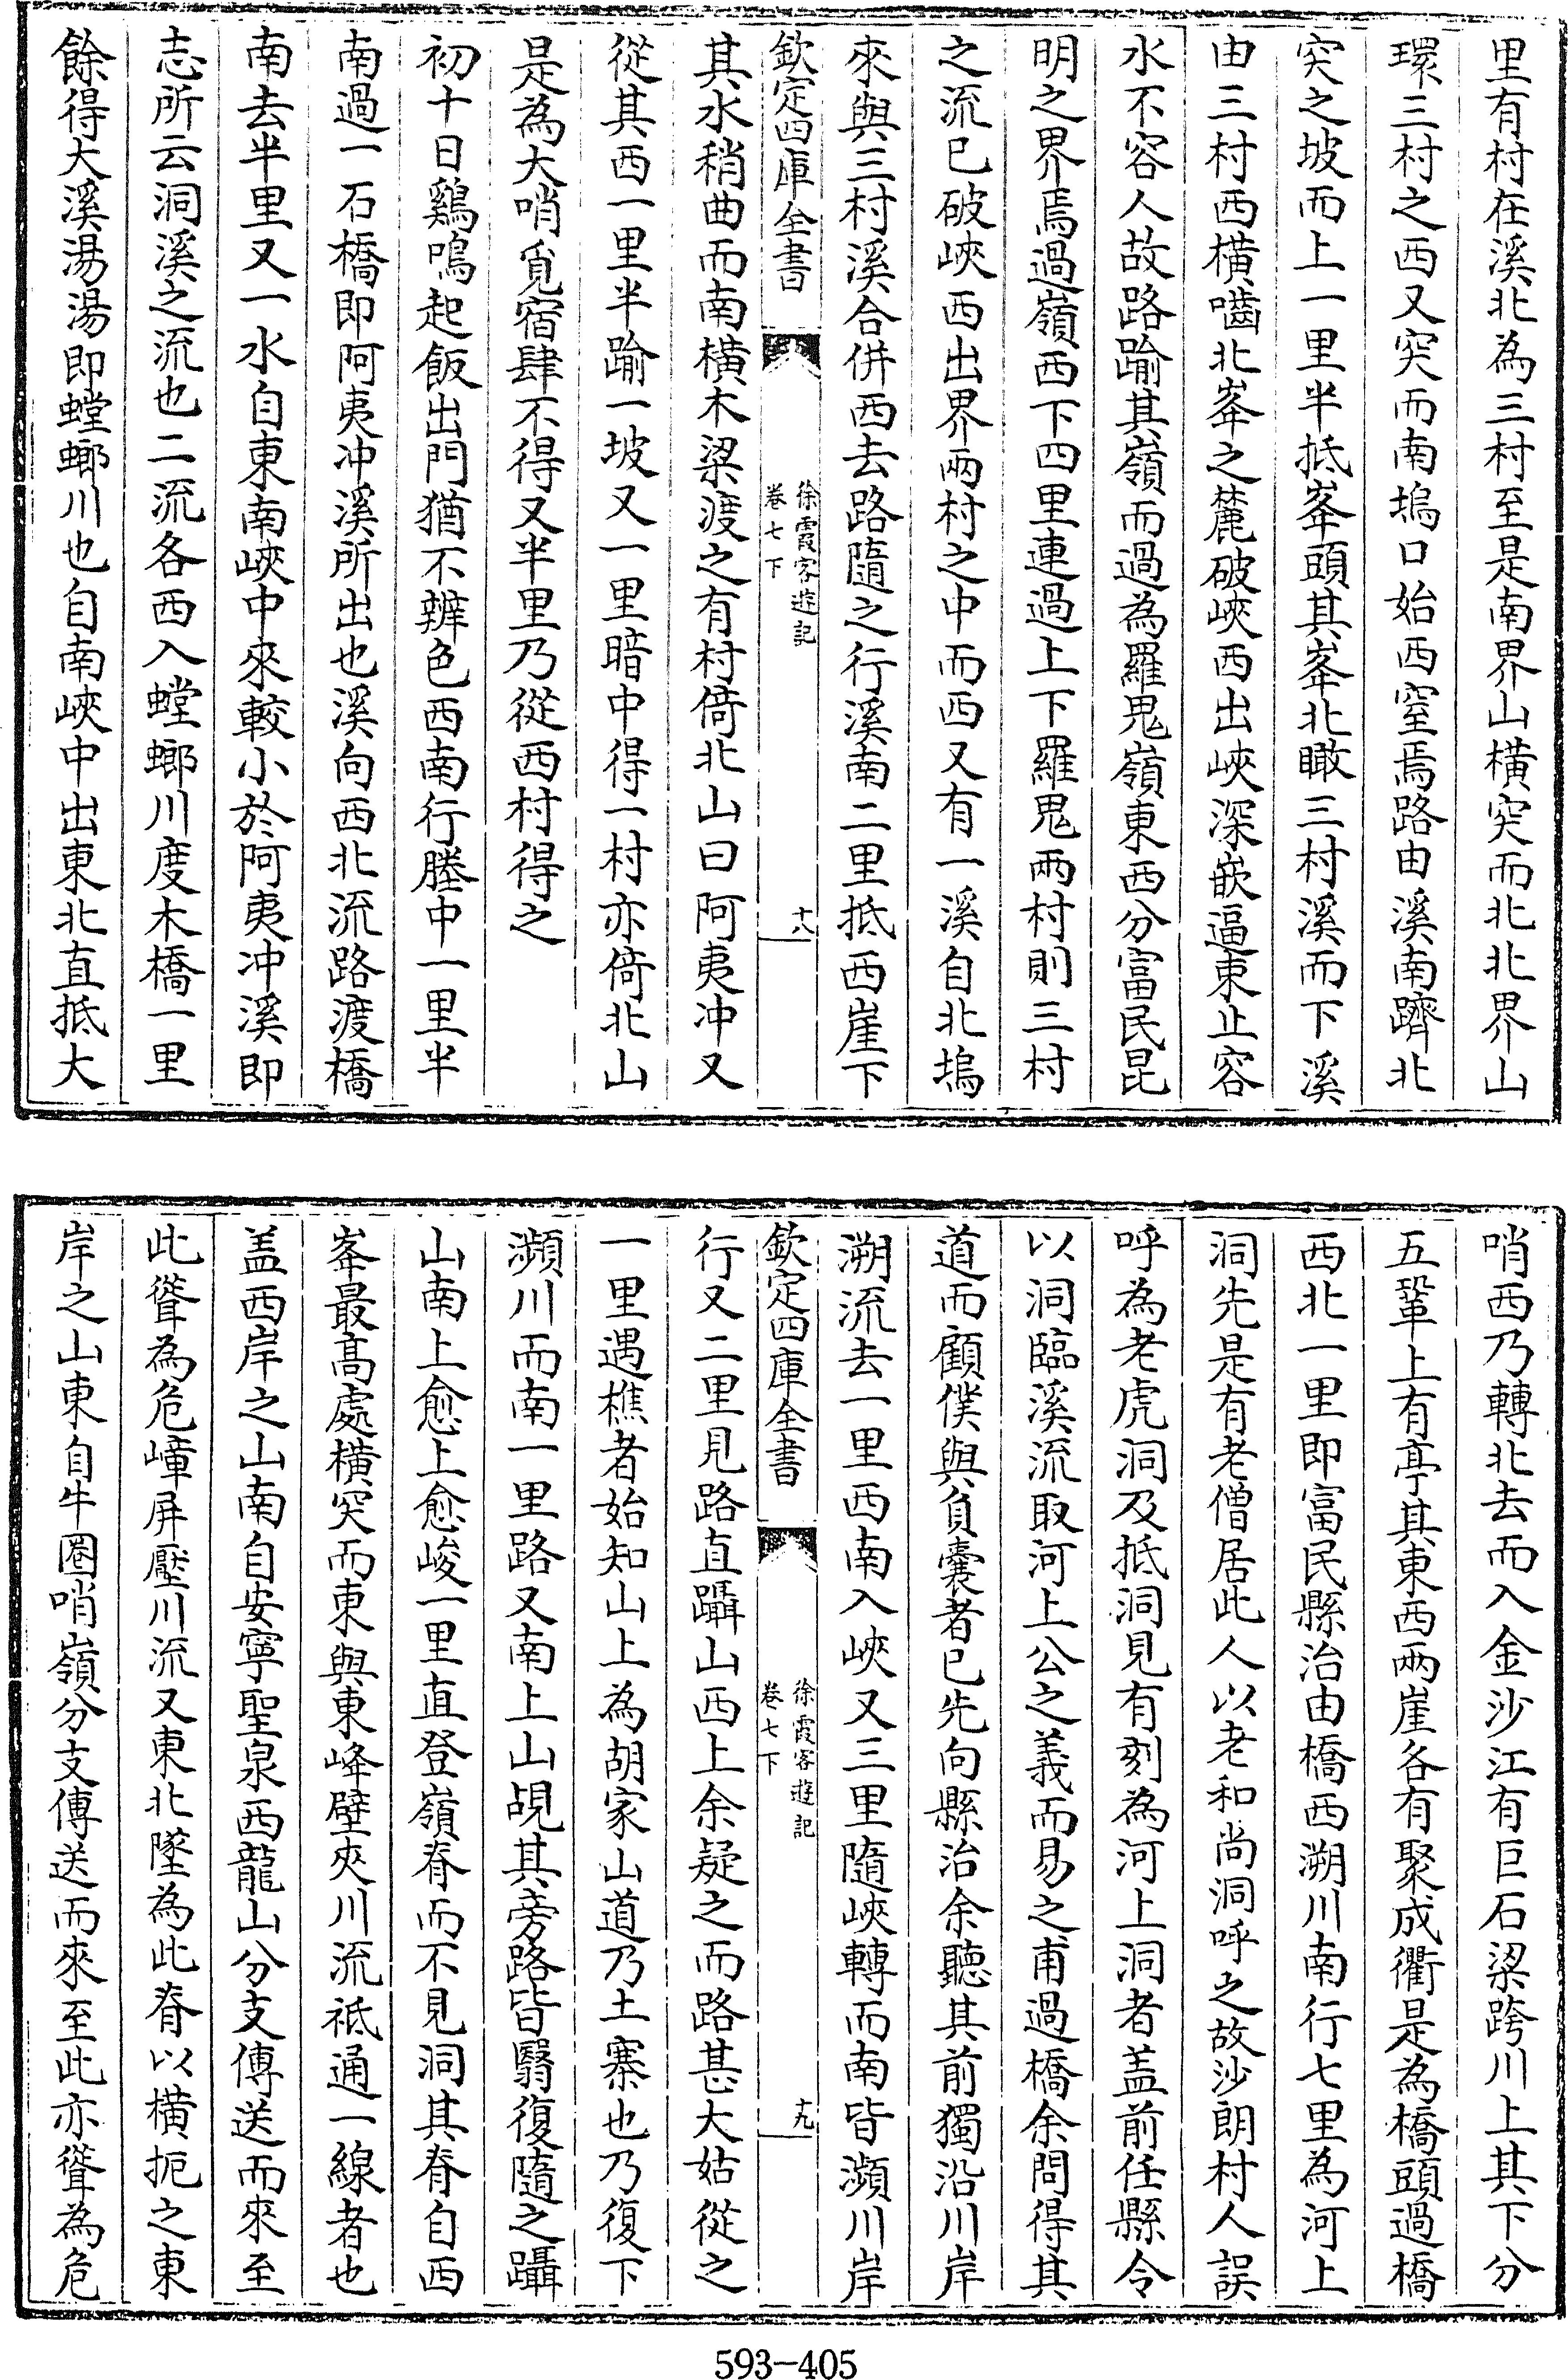 里有村在溪北為三村至是南界山橫突而北北界山
環三村之西又突而南塢口始西窒焉路由溪南躋北
突之坡而上一里半抵峯頭其峯北瞰三村溪而下溪
由三村西橫嚙北峯之麓破峽西出峽深嵌逼束止容
水不容人故路踰其嶺而過為羅鬼嶺東西分富民昆
明之界焉過嶺西下四里連過上下羅鬼兩村則三村
之流已破峽西出界兩村之中而西又有一溪自北塢
來與三村溪合併西去路隨之行溪南二里抵西崖下
欽定四庫全書
徐霞客遊記
卷七下
十八
其水稍曲而南橫木梁渡之有村倚北山曰阿夷冲又
從其西一里半踰一坡又一里暗中得一村亦倚北山
是為大哨覓宿肆不得又半里乃從西村得之
初十日鷄鳴起飯出門猶不辨色西南行塍中一里半
南過一石橋即阿夷冲溪所出也溪向西北流路渡橋
南去半里又一水自東南峽中來較小於阿夷冲溪即
志所云洞溪之流也二流各西入螳螂川度木橋一里
餘得大溪湯湯即螳螂川也自南峽中出東北直抵大
哨西乃轉北去而入金沙江有巨石梁跨川上其下分
五鞏上有亭其東西兩崖各有聚成衢是為橋頭過橋
西北一里即富民縣治由橋西溯川南行七里為河上
洞先是有老僧居此人以老和尚洞呼之故沙朗村人誤
呼為老虎洞及抵洞見有刻為河上洞者盖前任縣令
以洞臨溪流取河上公之義而易之甫過橋余問得其
道而顧僕與負囊者已先向縣治余聽其前獨沿川岸
溯流去一里西南入峽又三里隨峽轉而南皆瀕川岸
欽定四庫全書
徐霞客遊記
卷七下
十九
行又二里見路直躡山西上余疑之而路甚大姑從之
一里遇樵者始知山上為胡家山道乃土寨也乃復下
瀕川而南一里路又南上山覘其旁路皆翳復隨之躡
山南上愈上愈峻一里直登嶺脊而不見洞其脊自西
峯最高處橫突而東與東峰壁夾川流祗通一線者也
盖西岸之山南自安寧聖泉西龍山分支傳送而來至
此聳為危嶂屏壓川流又東北墜為此脊以橫扼之東
岸之山東自牛圈哨嶺分支傳送而來至此亦聳為危
593-405